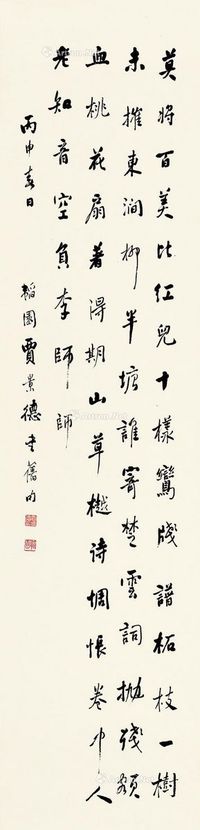 莫將百美比紅兒十樣鸞牋譜柘枝一樹
未摧東澗柳半塘誰寄楚雲詞抛殘額
血桃花扇著得期山草樾诗惆悵卷中人
老知音空負李師師
丙申春日
稻園賈景德書舊句